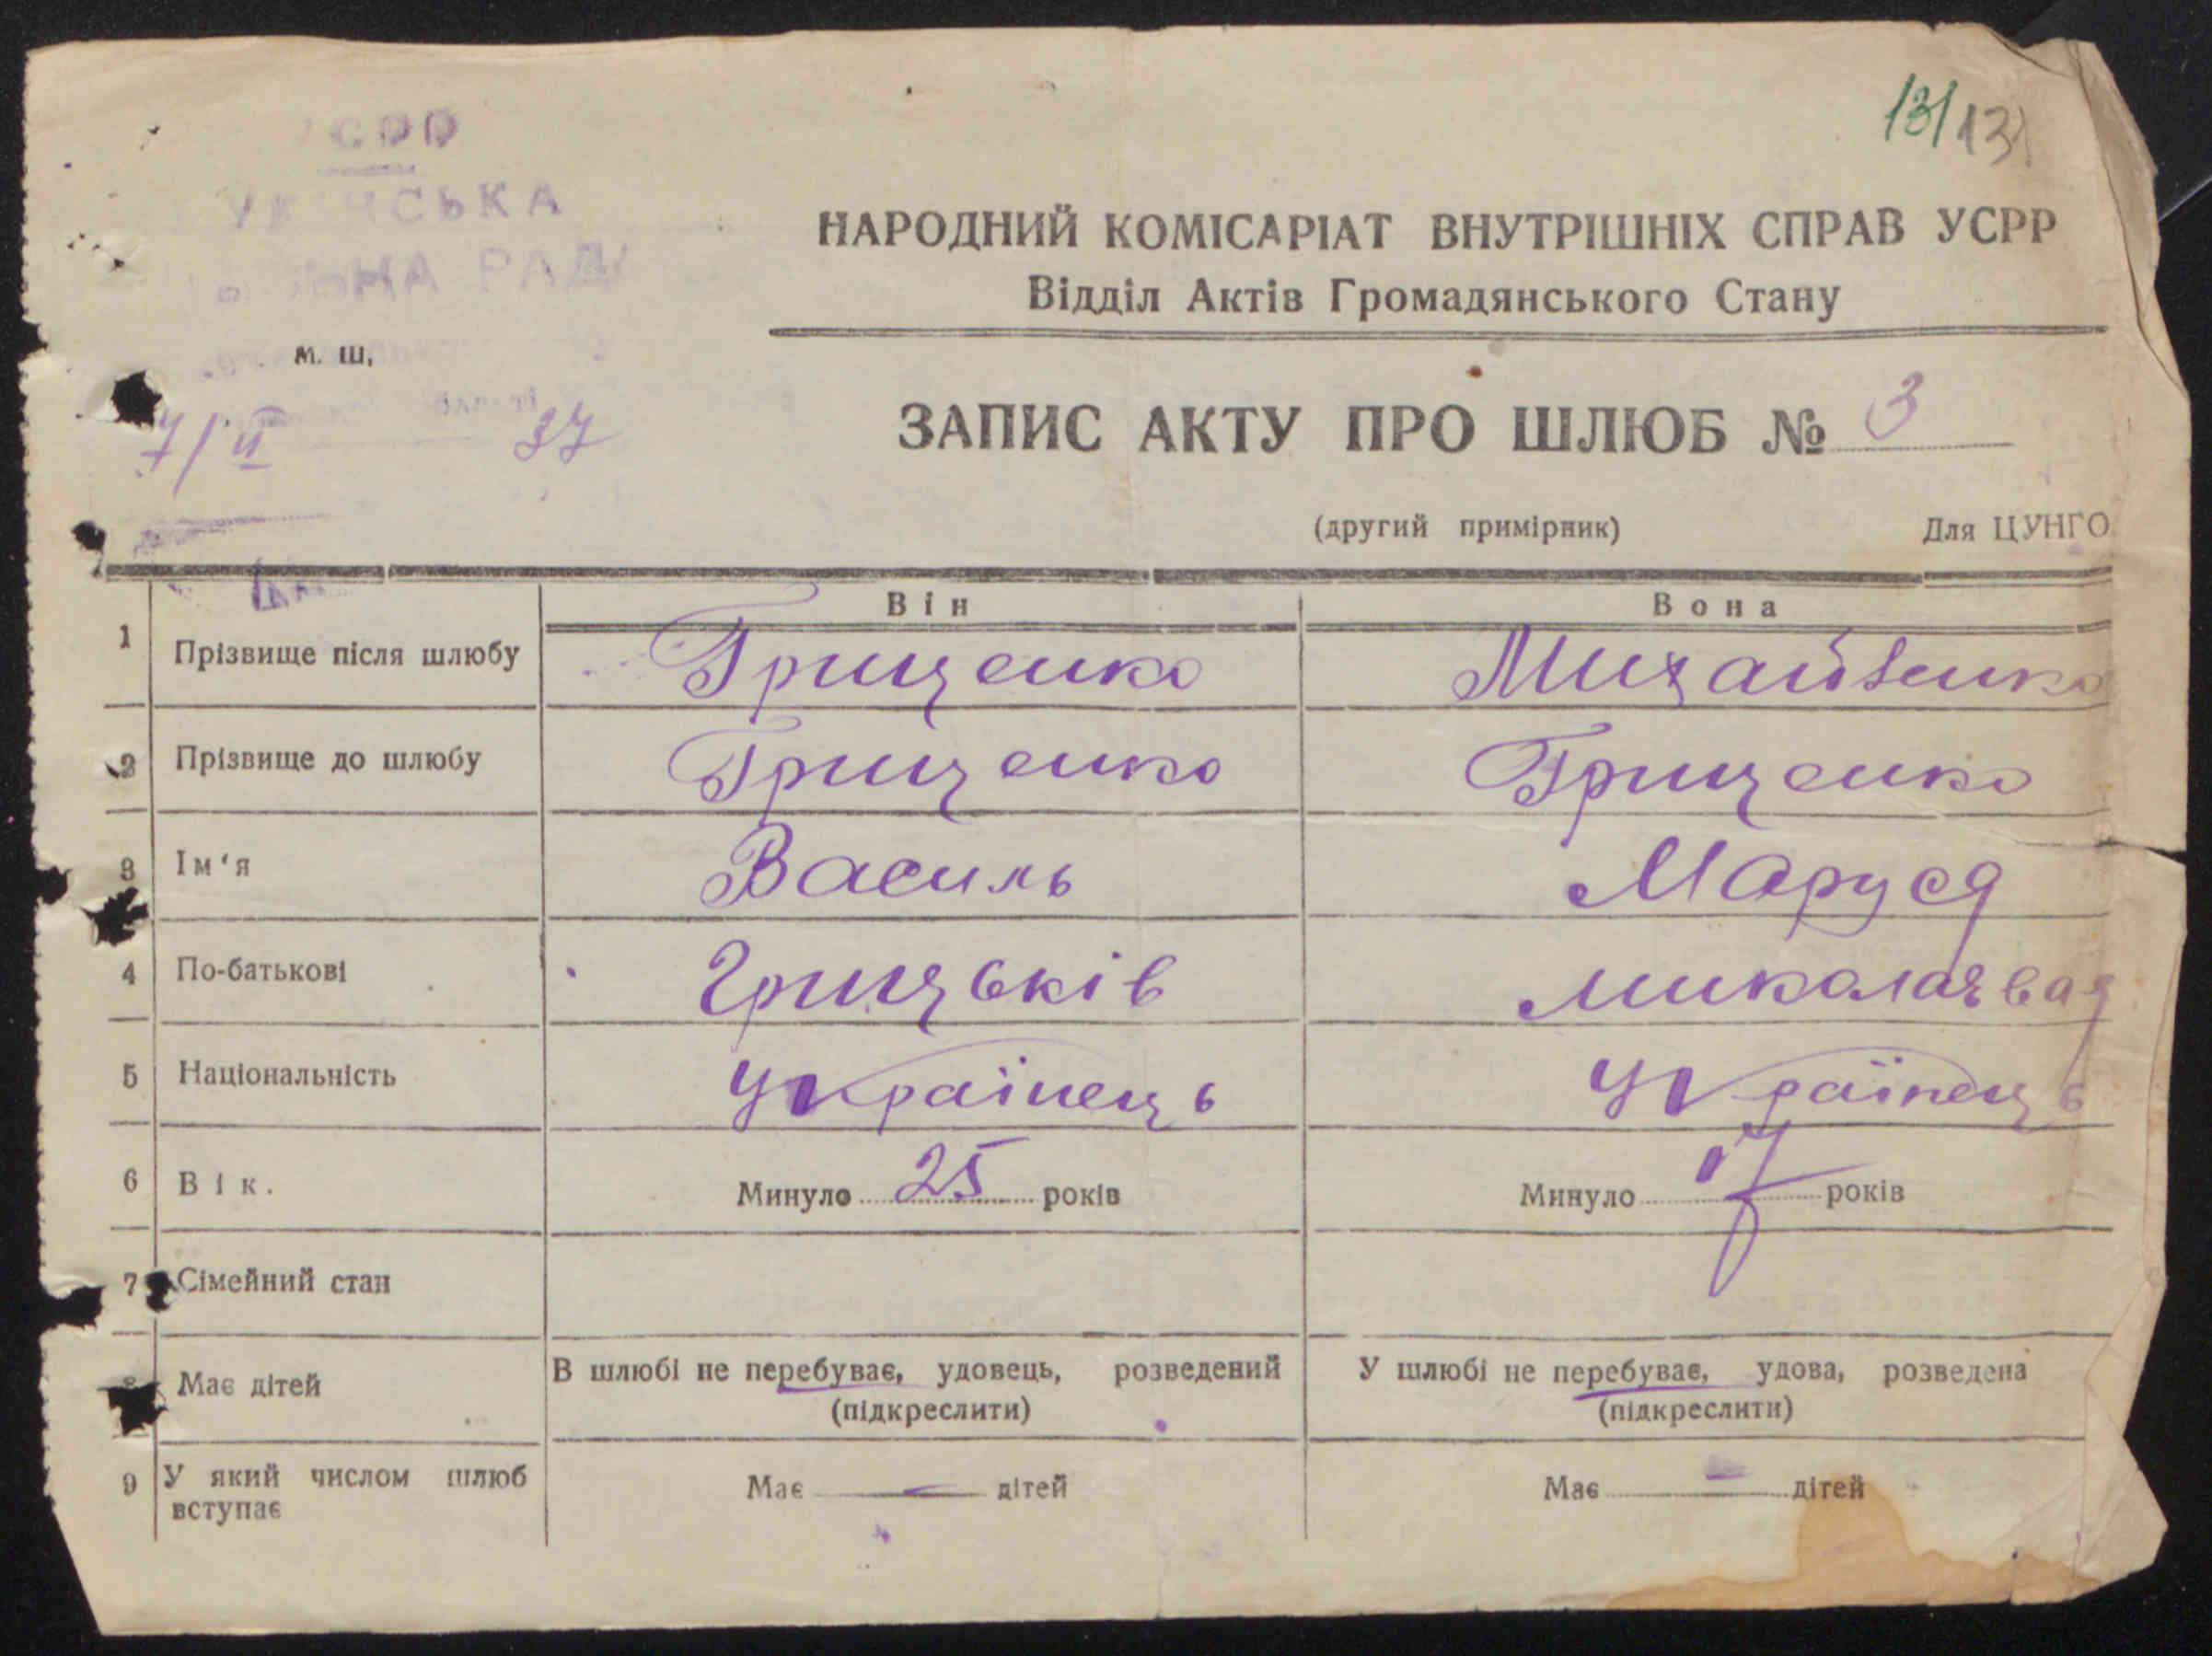 131 131
НАРОДНИЙ КОМІСАРІАТ ВНУТРІШНІХ СПРАВ УСРР
Відділ Актів Громадянського Стану
м. ш,
7/II 37
ЗАПИС АКТУ ПРО ШЛЮБ № 3
(другий примірник) Для ЦУНГО
Він Вона
1 Прізвище після шлюбу Грищенко Михайвенко
2 Прізвище до шлюбу Грищенко Грищенко
3 Ім'я Василь Маруся
4 По-батькові Грицьків миколаєвая
5 Національність Українець Українець
6 Вік. Минуло 25 років Минуло 17 років
7 Сімейний стан
8 Має дітей В шлюбі не перебуває, удовець, розведений У шлюбі не перебуває, удова, розведена
(підкреслити) (підкреслити)
9 У який числом шлюб Має — дітей Має — дітей
вступає